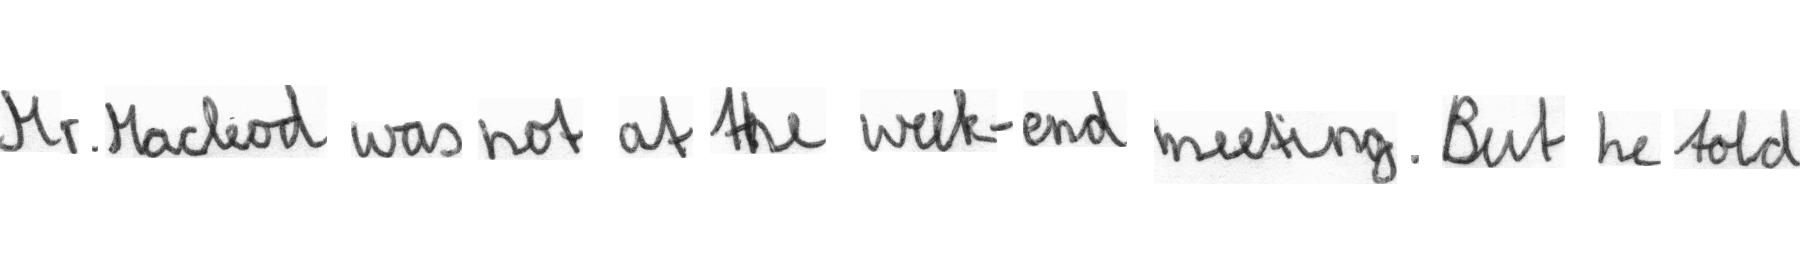 Mr. Macleod was not at the week-end meeting. But he told